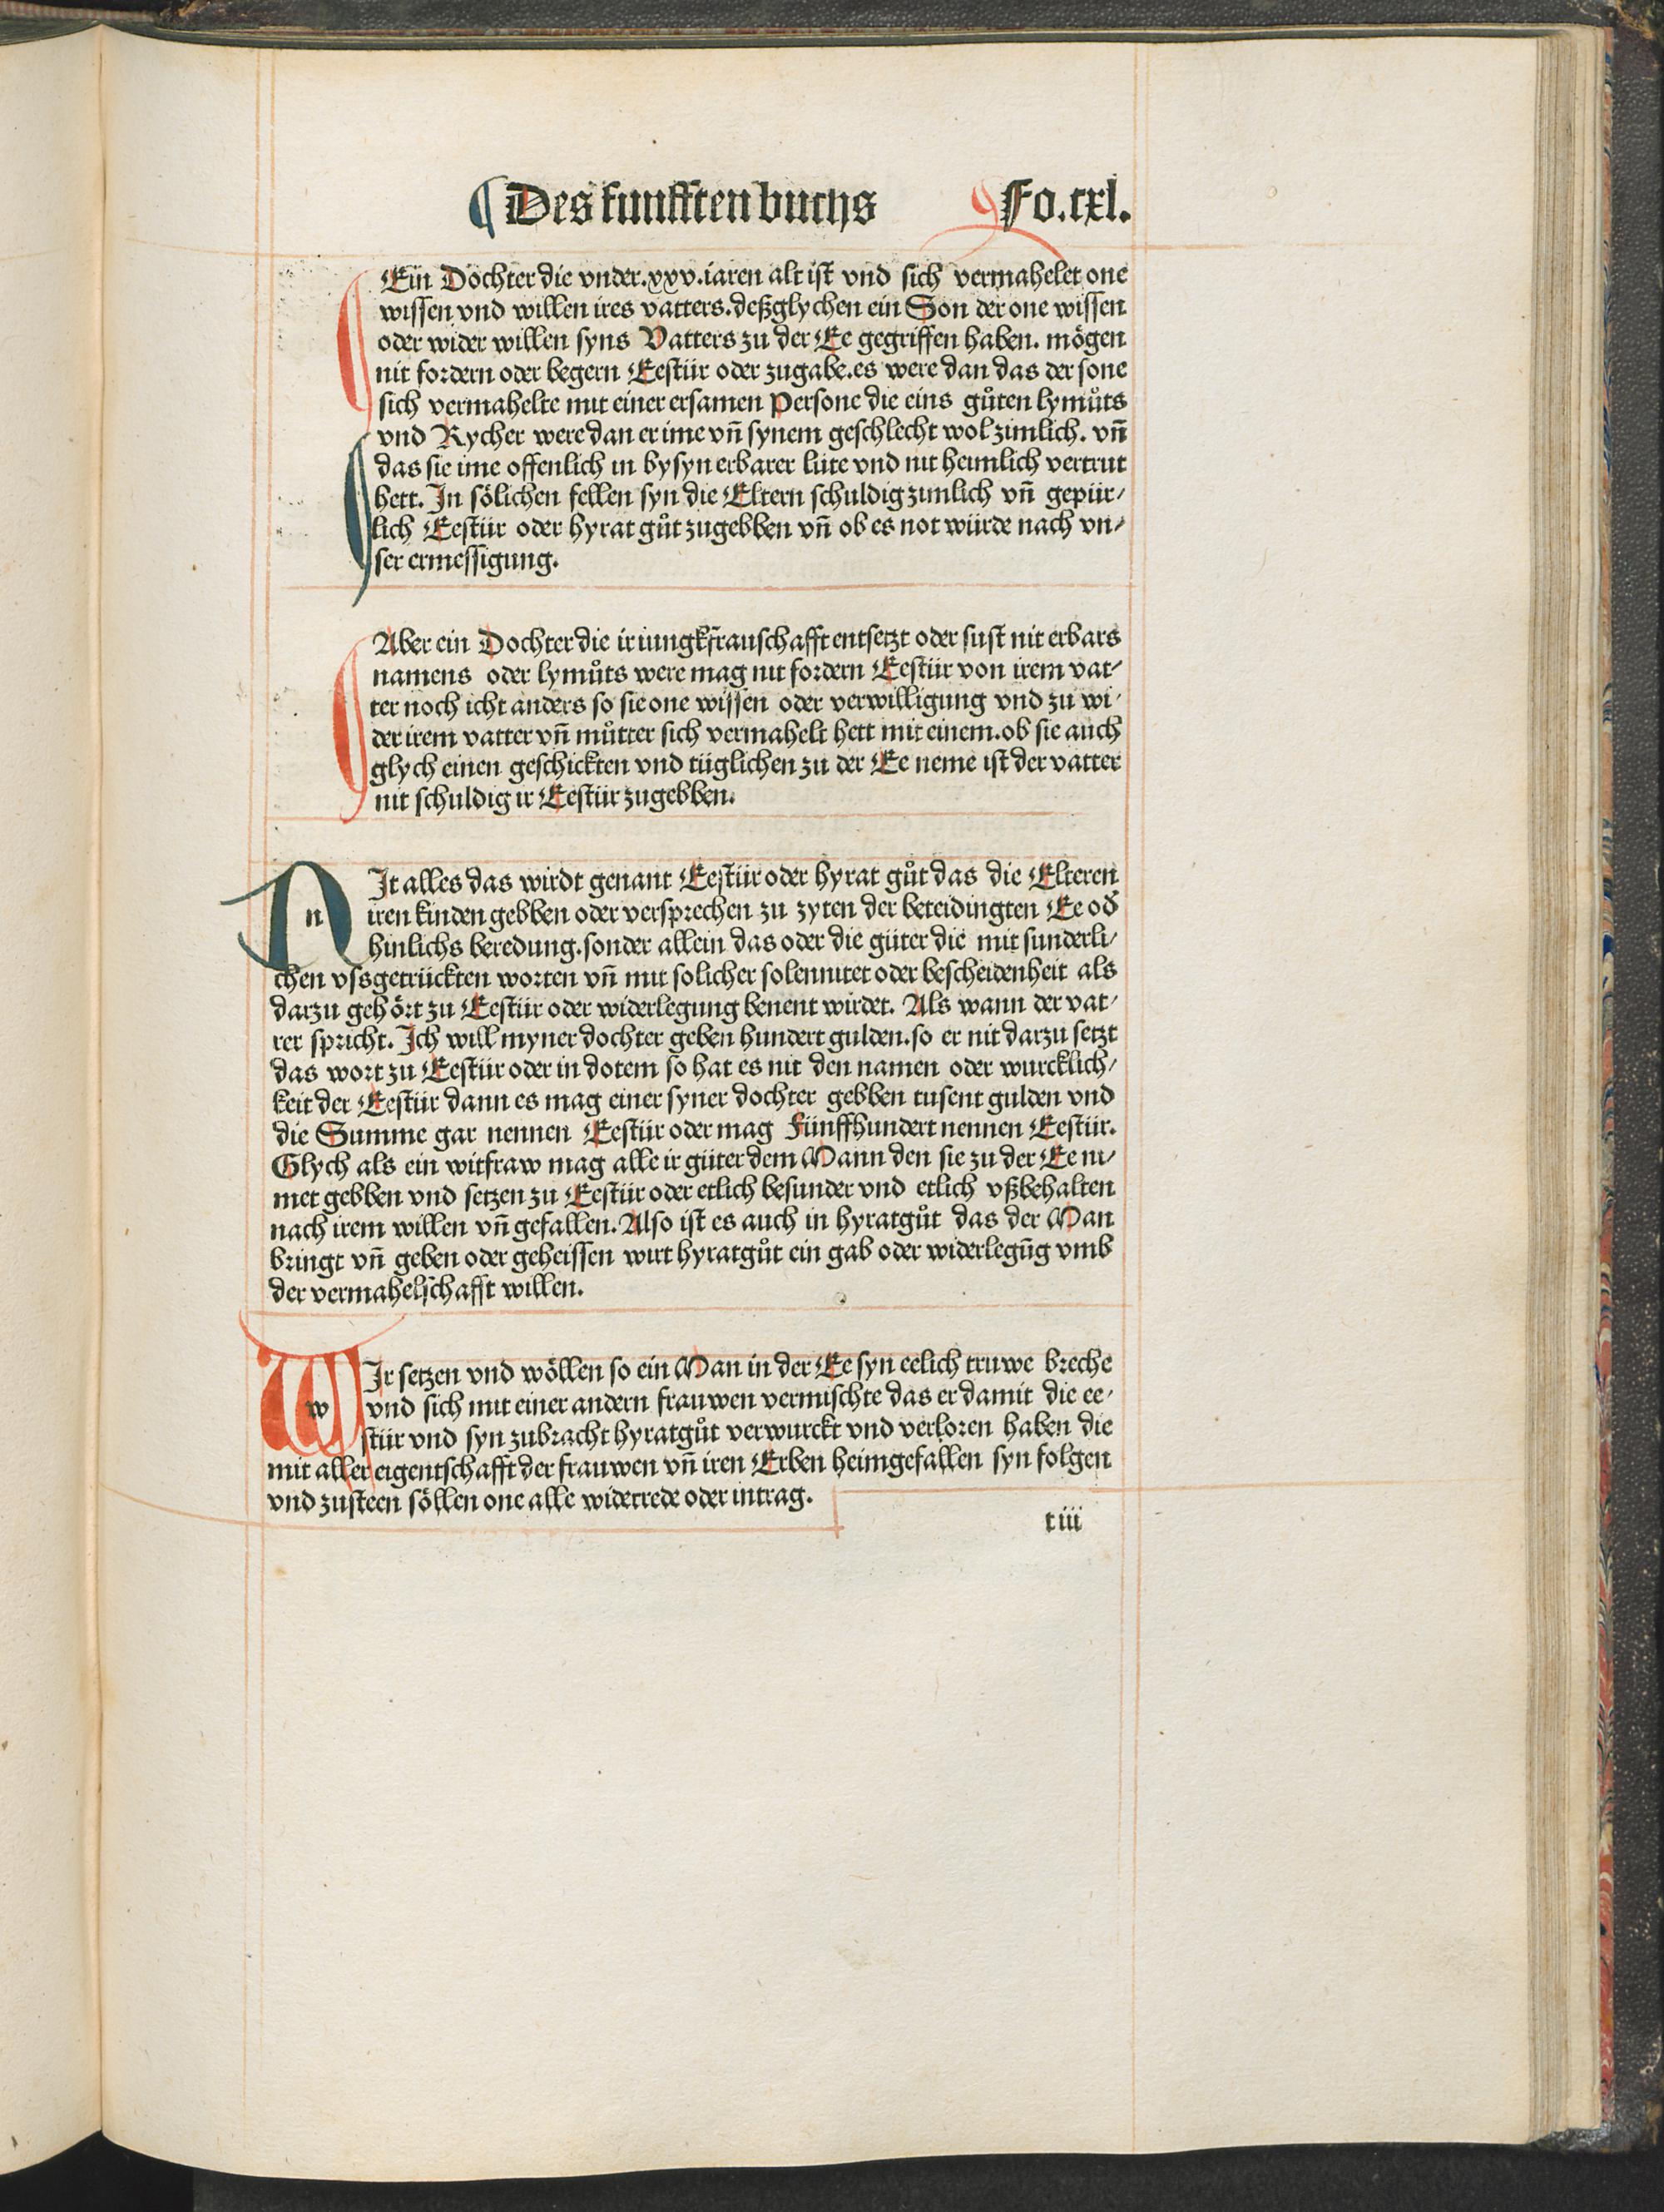 ¶ Des funfften buchs Fo. cxl.
Ein Dochter die vnder .xxv. iaren alt ist vnd sich vermahelet one
wissen vnd willen ires vatters. deßglychen ein Son der one wissen
oder wider willen syns Vatters zu der Ee gegriffen haben. mögen
nit fordern oder begern Eestür oder zugabe. es were dan das der sone
sich vermahelte mit einer ersamen Persone die eins gůten lymůts
vnd Rycher were dan er ime vn̄ synem geschlecht wol zimlich. vn̄
das sie ime offenlich in bysyn erbarer lüte vnd nit heimlich vertrut
hett. In sölichen fellen syn die Eltern schuldig zimlich vn̄ gepür/
lich Eestür oder hyrat gůt zugebben vn̄ ob es not würde nach vn/
ser ermessigung.
Aber ein Dochter die ir iungkfrauschafft entsetzt oder sust nit erbars
namens oder lymůts were mag nit fordern Eestür von irem vat/
ter noch icht anders so sie one wissen oder verwilligung vnd zu wi/
der irem vatter vn̄ můtter sich vermahelt hett mit einem. ob sie auch
glych einen geschickten vnd tüglichen zu der Ee neme ist der vatter
nit schuldig ir Eestür zugebben.
NIt alles das wirdt genant Eestür oder hyrat gůt das die Elteren
n iren kinden gebben oder versprechen zu zyten der beteidingten Ee od̄
hinlichs beredung. sonder allein das oder die güter die mit sunderli/
chen vssgetrückten worten vn̄ mit solicher solennitet oder bescheidenheit als
darzu gehört zu Eestür oder widerlegung benent wirdet. Als wann der vat/
rer spricht. Ich will myner dochter geben hundert gulden. so er nit darzu setzt
das wort zu Eestür oder in dotem so hat es nit den namen oder wurcklich/
keit der Eestür dann es mag einer syner dochter gebben tusent gulden vnd
die Summe gar nennen Eestür oder mag Fünffhundert nennen Eestür.
Glych als ein witfraw mag alle ir güter dem Mann den sie zu der Ee ni/
met gebben vnd setzen zu Eestür oder etlich besunder vnd etlich vßbehalten
nach irem willen vn̄ gefallen. Also ist es auch in hyratgůt das der Man
bringt vn̄ geben oder geheissen wirt hyratgůt ein gab oder widerlegūg vmb
der vermahelschafft willen.
WIr setzen vnd wöllen so ein Man in der Ee syn eelich truwe breche
w vnd sich mit einer andern frauwen vermischte das er damit die ee/
stür vnd syn zubracht hyratgůt verwurckt vnd verloren haben die
mit aller eigentschafft der frauwen vn̄ iren Erben heimgefallen syn folgen
vnd zusteen söllen one alle widerrede oder intrag.
t iii